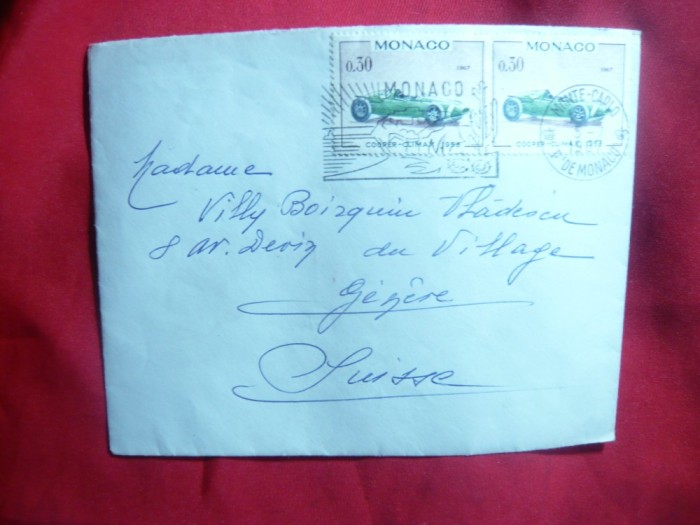 MONACO MONACO
0.30 1967 0.30 1967
MONACO
COOPER-CLIMAX 1958 COOPER-CLIMAX
MONTE-CARLO
PTÉ DE MONACO
Madame
Villy Boisquin Vlădescu
8 av. Devin du Village
Genève
Suisse